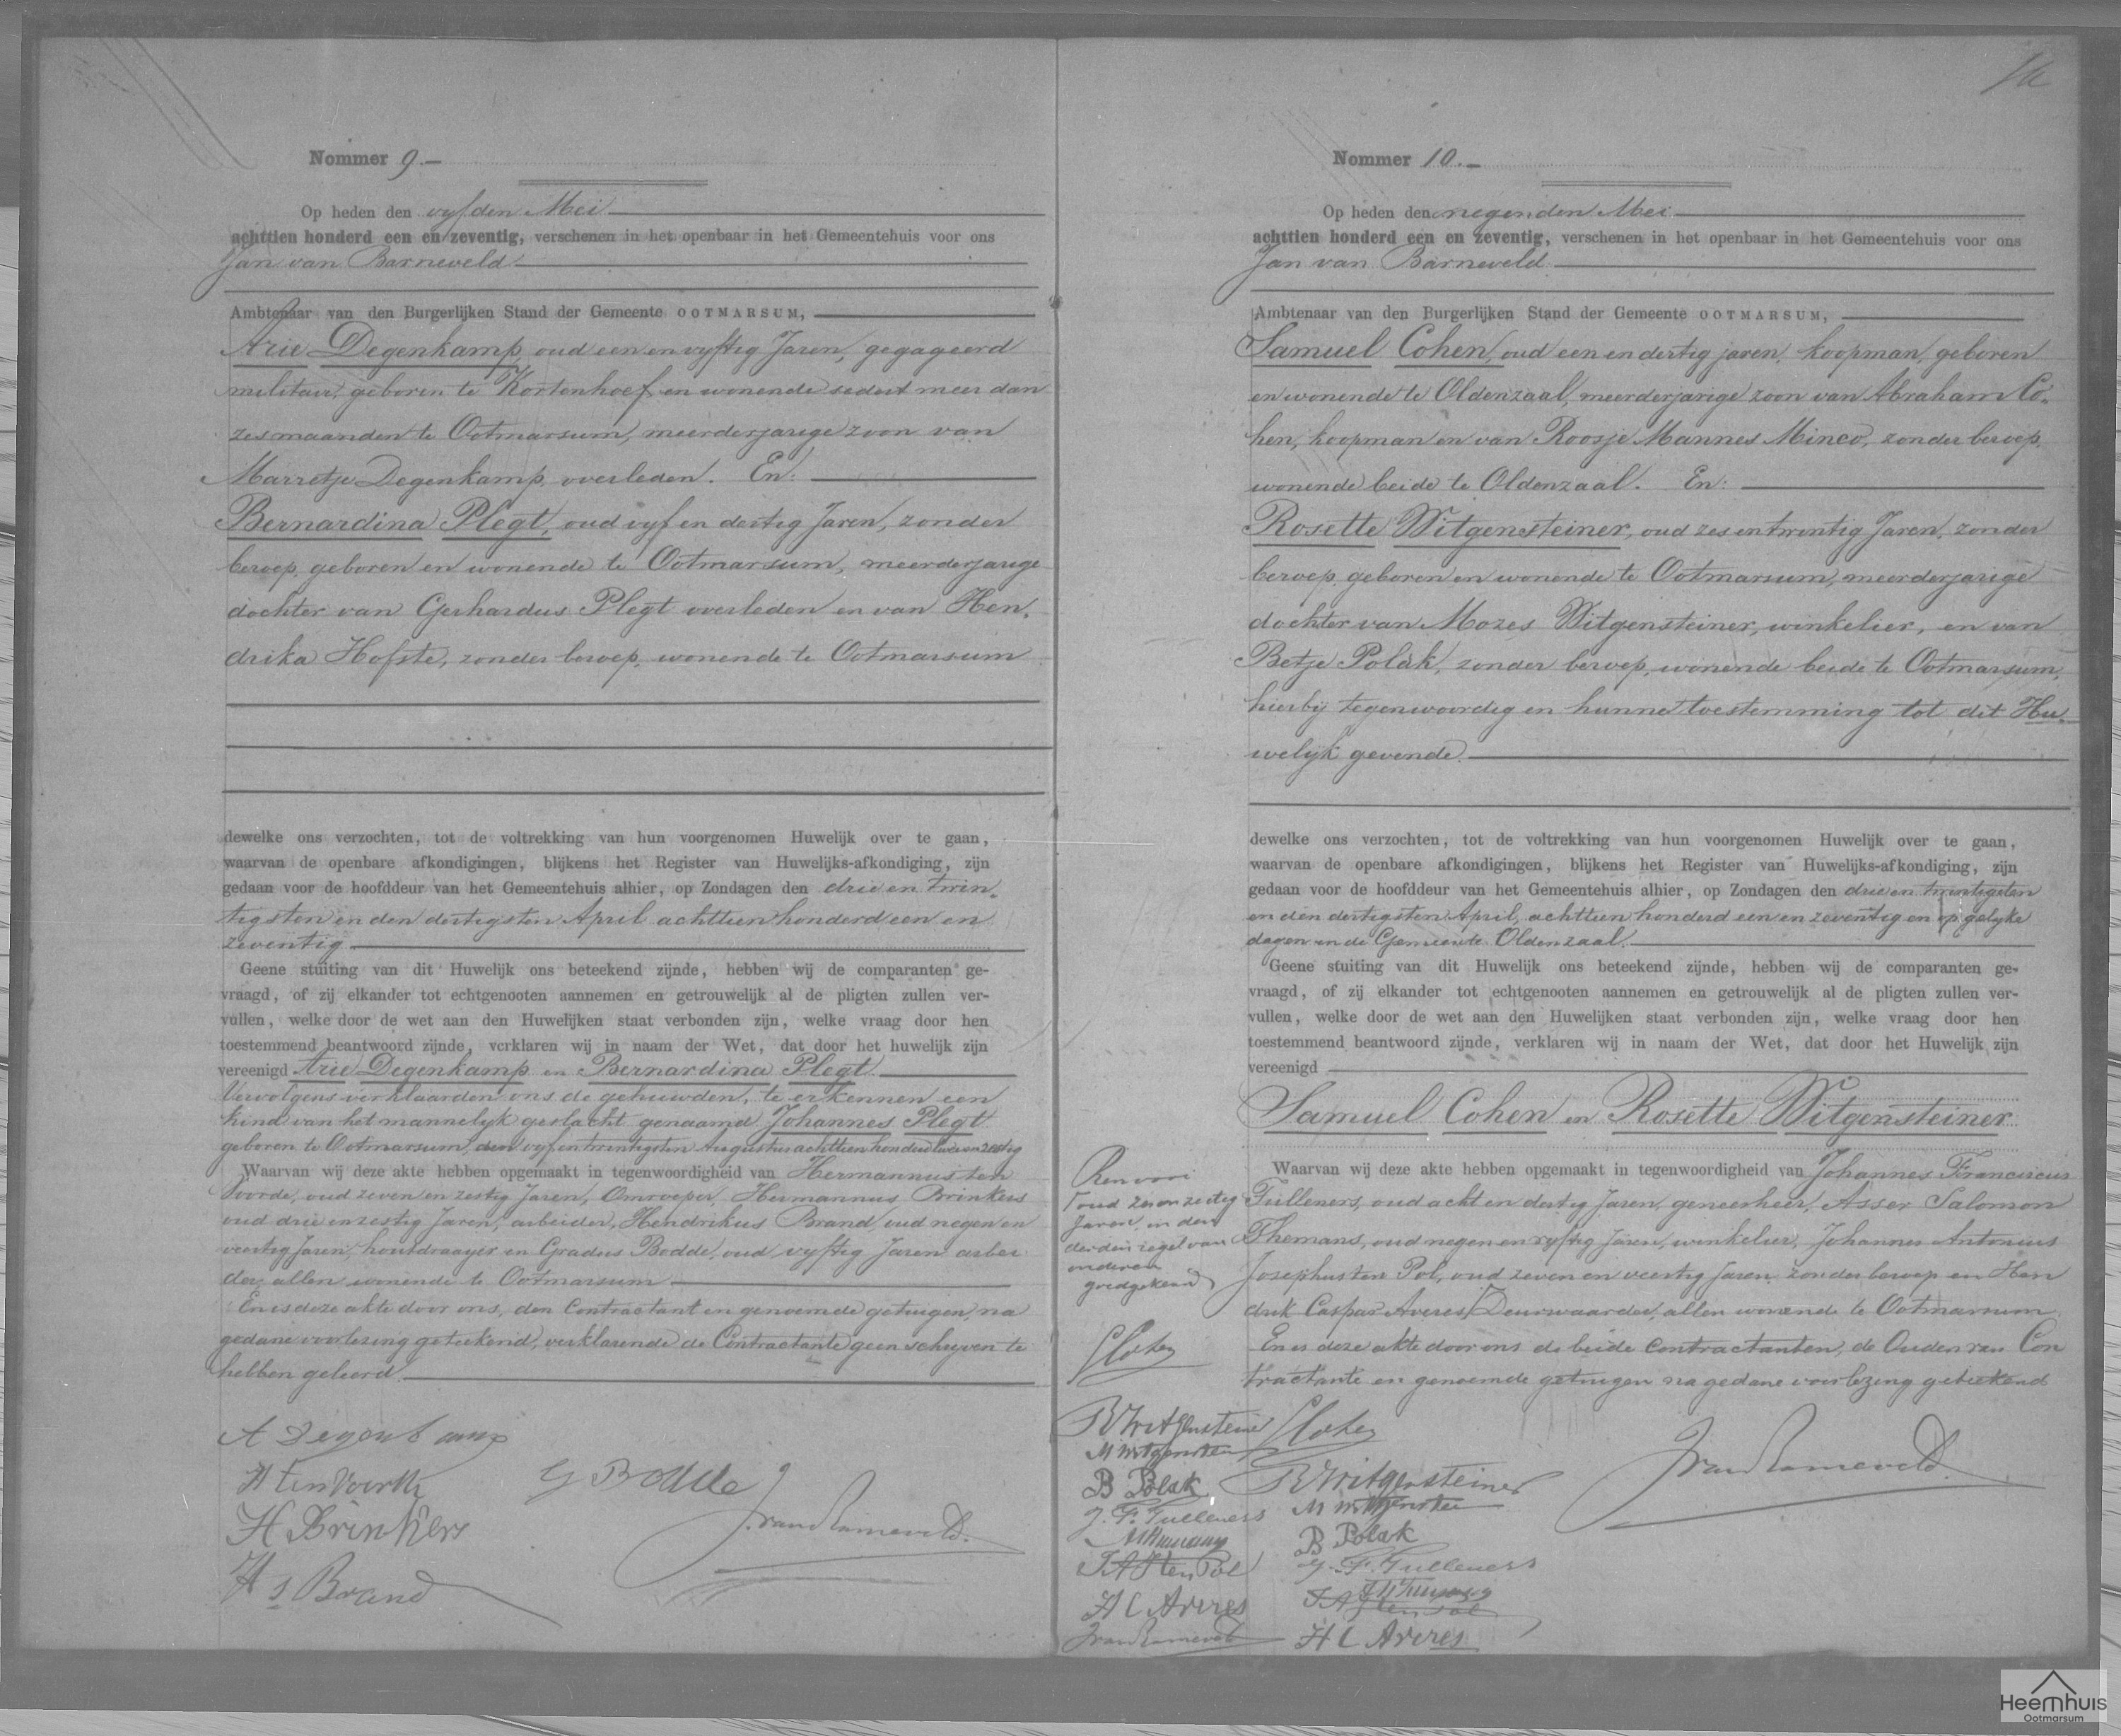 Nommer 9.—
Op heden den vyfden Mei
achttien honderd een en zeventig, verschenen in het openbaar in het Gemeentehuis voor ons
Jan van Barneveld
Ambtenaar van den Burgerlijken Stand der Gemeente OOTMARSUM,
Arie Degenkamp, oud een en vyftig Jaren, gegageerd
militair, geboren te Kortenhoef en wonende sedert meer dan
zes maanden te Ootmarsum, meerderjarige zoon van
Marretje Degenkamp, overleden. En:
Bernardina Plegt, oud vyf en dertig Jaren, zonder
beroep, geboren en wonende te Ootmarsum, meerderjarige
dochter van Gerhardus Plegt overleden en van Hen,
drika Hofste, zonder beroep, wonende te Ootmarsum
dewelke ons verzochten, tot de voltrekking van hun voorgenomen Huwelijk over te gaan,
waarvan de openbare afkondigingen, blijkens het Register van Huwelijks-afkondiging, zijn
gedaan voor de hoofddeur van het Gemeentehuis alhier, op Zondagen den drie en twin,
tigsten en den dertigsten April achttien honderd een en
zeventig
Geene stuiting van dit Huwelijk ons beteekend zijnde, hebben wij de comparanten ge-
vraagd, of zij elkander tot echtgenooten aannemen en getrouwelijk al de pligten zullen ver-
vullen, welke door de wet aan den Huwelijken staat verbonden zijn, welke vraag door hen
toestemmend beantwoord zijnde, verklaren wij in naam der Wet, dat door het huwelijk zijn
vereenigd Arie Degenkamp en Bernardina Plegt
Vervolgens verklaarden ons de gehuwden, te erkennen een
kind van het mannelyk geslacht genaamd Johannes Plegt
geboren te Ootmarsum, den vyf en twintigsten Augustus achttien honderd twee en zestig
Waarvan wij deze akte hebben opgemaakt in tegenwoordigheid van Hermannus ten
Voorde, oud zeven en zestig Jaren, Omroeper, Hermannus Brinkers
oud drie en zestig Jaren, arbeider, Hendrikus Brand, oud negen en
veertig Jaren, houtdraayer en Gradus Bodde, oud vyftig Jaren arbei
der, allen wonende te Ootmarsum
En is deze akte door ons, den Contractant en genoemde getuigen, na
gedane voorlezing geteekend, verklarende de Contractante geen schryven te
hebben geleerd.
A Degenkamp
H ten Voorde
G Bodde
H Brinkers
J. van Barneveld.
H s Brand
Nommer 10.—
Op heden den negenden Mei
achttien honderd een en zeventig, verschenen in het openbaar in het Gemeentehuis voor ons
Jan van Barneveld
Ambtenaar van den Burgerlijken Stand der Gemeente OOTMARSUM,
Samuel Cohen, oud een en dertig jaren, koopman, geboren
en wonende te Oldenzaal, meerderjarige zoon van Abraham Co,
hen, koopman en van Roosje Mannes Minco, zonder beroep,
wonende beide te Oldenzaal. En:
Rosette Witgensteiner, oud zes en twintig Jaren, zonder
beroep, geboren en wonende te Ootmarsum, meerderjarige
dochter van Mozes Witgensteiner, winkelier, en van
Betje Polak, zonder beroep, wonende beide te Ootmarsum,
hierby tegenwoordig en hunne toestemming tot dit Hu,
welyk gevende.
dewelke ons verzochten, tot de voltrekking van hun voorgenomen Huwelijk over te gaan,
waarvan de openbare afkondigingen, blijkens het Register van Huwelijks-afkondiging, zijn
gedaan voor de hoofddeur van het Gemeentehuis alhier, op Zondagen den drie en twintigsten
en den dertigsten April, achttien honderd een en zeventig en op gelyke
dagen in de Gemeente Oldenzaal.
Geene stuiting van dit Huwelijk ons beteekend zijnde, hebben wij de comparanten ge-
vraagd, of zij elkander tot echtgenooten aannemen en getrouwelijk al de pligten zullen ver-
vullen, welke door de wet aan den Huwelijken staat verbonden zijn, welke vraag door hen
toestemmend beantwoord zijnde, verklaren wij in naam der Wet, dat door het Huwelijk zijn
vereenigd
Samuel Cohen en Rosette Witgensteiner
Waarvan wij deze akte hebben opgemaakt in tegenwoordigheid van Johannes Franciscus
Tulleners, oud acht en dertig Jaren, geneesheer, Asser Salomon
Themans, oud negen en vyftig Jaren, winkelier, Johannes Antonius
Josephus ten Pol, oud zeven en veertig Jaren, zonder beroep en Hen
drik Caspar Averes, Deurwaarder, allen wonende te Ootmarsum
En is deze akte door ons de beide contractanten, de Ouders van Con
tractante en genoemde getuigen na gedane voorlezing geteekend
Renvooi
oud zes en zestig
Jaren, in den
derden regel van
onderen
goedgekeurd
SCohen
RWitgensteiner
M Witgenstein
B Polak
J. F. Tulleners
ASThemans
J A J ten Pol
H C Averes
J van Barneveld
SCohen
RWitgensteiner
M Witgenstein
B Polak
J. F. Tulleners
J A J ten Pol
H C Averes
J van Barneveld.
Heemhuis
Ootmarsum